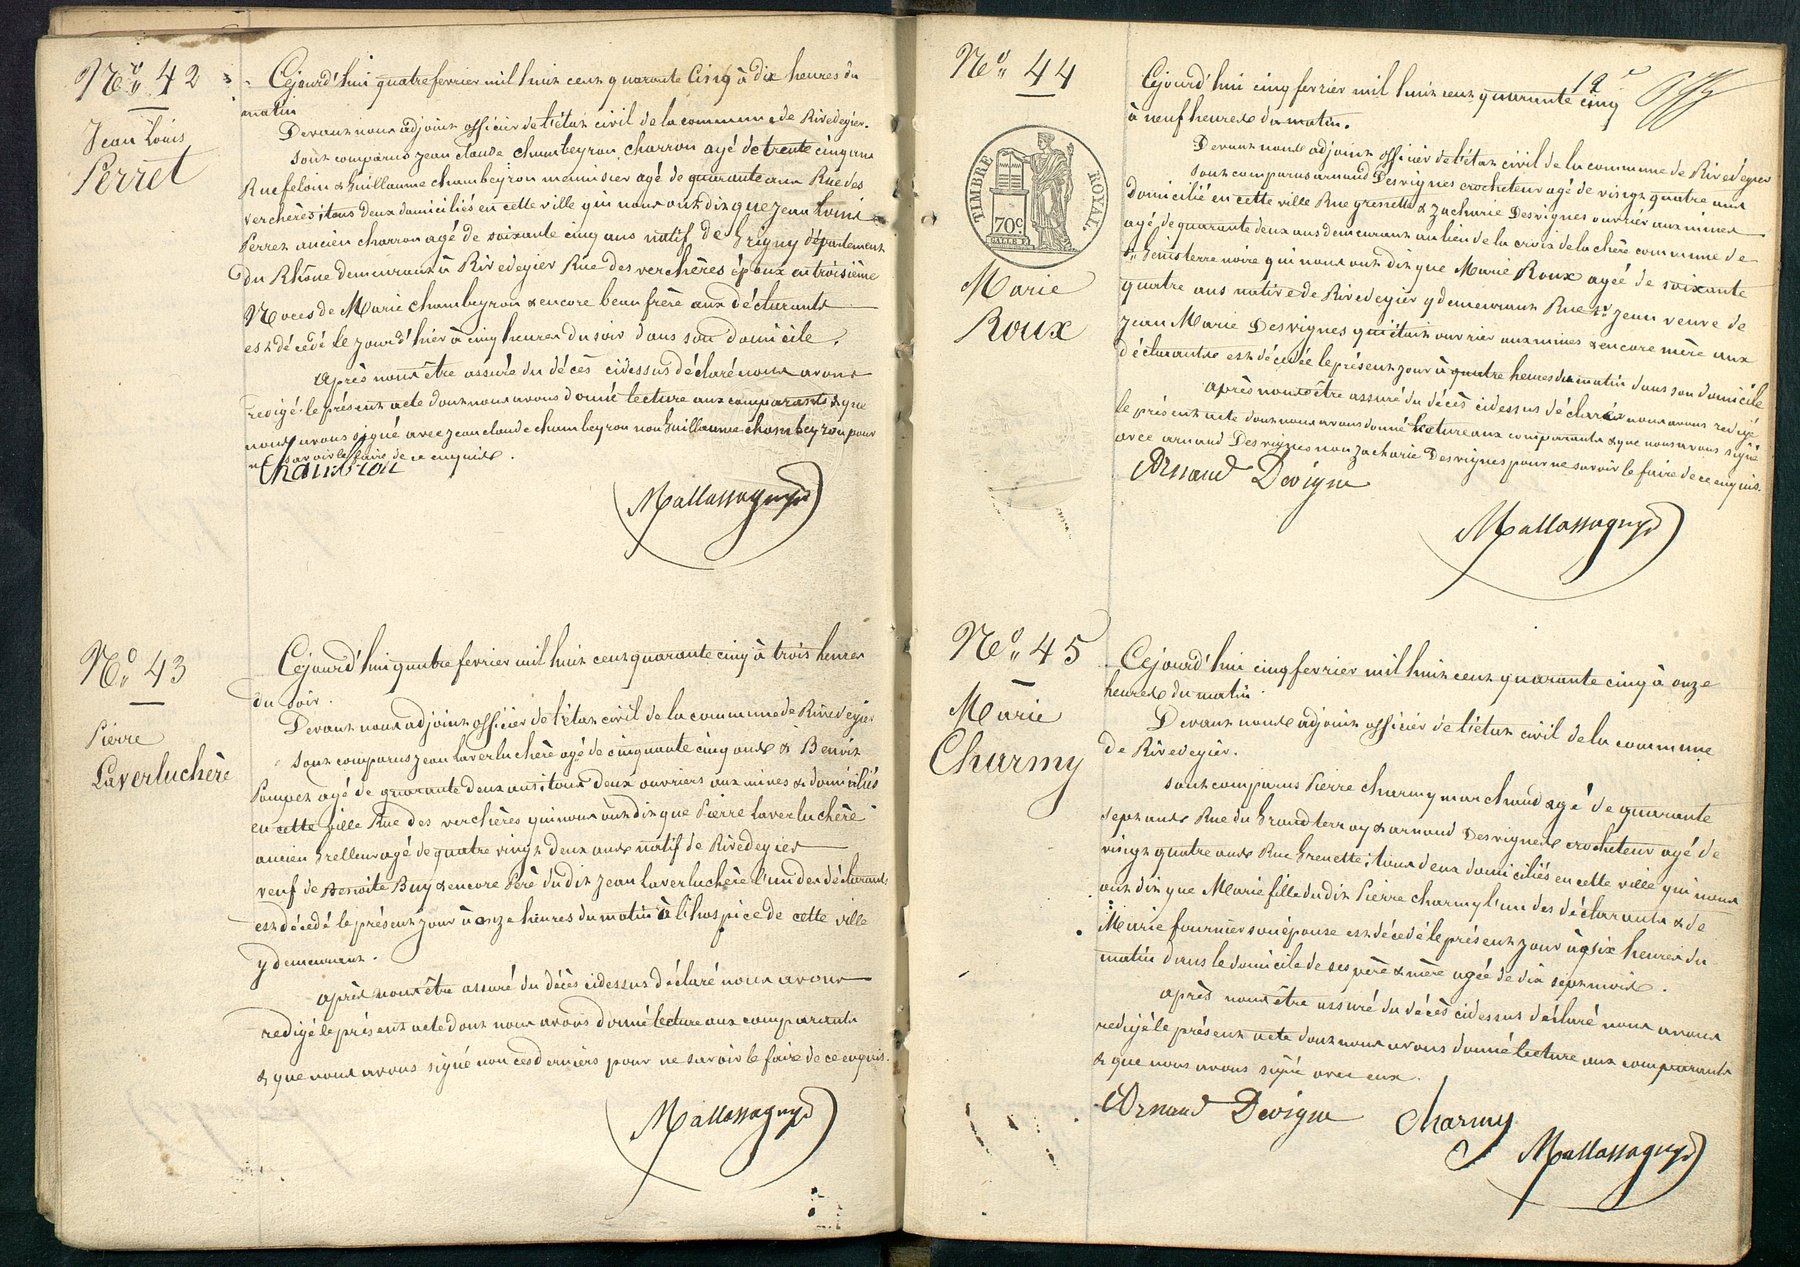 N.° 42
Jean Louis
Perret
Cejourd'hui quatre fevrier mil huit cent quarante Cinq à dix heures du
matin
Devant nous adjoint officier de l'état civil de la commune de Rivedegier.
sont comparus jean claude chambeyron charron agé de trente cinq ans
Rue feloin & Guillaume chambeyron menuisier agé de quarante ans Rue des
verchères; tous deux domiciliés en cette ville qui nous ont dit que jean louis
Perret ancien charron agé de soixante cinq ans natif de Grigny département
du Rhône demeurant à Rivedegier Rue des verchères époux en troisième
Noces de Marie chambeyron & encore beau frère aux déclarants
est décédé le jour d'hier à cinq heures du soir dans son domicile.
après nous être assuré du décès cidessus déclaré nous avons
redigé le présent acte dont nous avons donné lecture aux comparants & que
nous avons signé avec jean claude chambeyron non Guillaume chambeyron pour
ne savoir le faire de ce enquis.
Mallassagnyd
N.° 43
Pierre
Laverluchère
Cejourd'hui quatre fevrier mil huit cent quarante cinq à trois heures
du soir.
Devant nous adjoint officier de l'état civil de la commune de Rivedegier
sont comparus jean laverluchère agé de cinquante cinq ans & Benoit
Pompet agé de quarante deux ans; tous deux ouvriers aux mines & domiciliés
en cette ville Rue des verchères qui nous ont dit que Pierre laverluchère
ancien Grelleur agé de quatre vingt deux ans natif de Rivedegier
veuf de Benoite Buy & encore Père dudit jean laverluchère l'un des déclarants
est décédé le présent jour à onze heures du matin à l'hospice de cette ville
y demeurant.
après nous être assuré du décès cidessus déclaré nous avons
redigé le présent acte dont nous avons donné lecture aux comparants
& que nous avons signé non ces derniers pour ne savoir le faire de ce enquis.
Mallassagnyd
12
N.° 44
TIMBRE ROYAL.
70c
Marie
Roux
Cejourd'hui cinq fevrier mil huit cent quarante cinq
à neuf heures du matin.
Devant nous adjoint officier de l'état civil de la commune de Rivedegier
sont comparus arnaud Desvignes crocheteur agé de vingt quatre ans
domicilié en cette ville Rue grenette & zacharie Desvignes ouvrier aux mines
agé de quarante deux ans demeurant au lieu de la croix de lachère commune de
st Genisterrenoire qui nous ont dit que Marie Roux agée de soixante
quatre ans native de Rivedegier y demeurant Rue st jean veuve de
jean Marie Desvignes qui était ouvrier aux mines & encore mère aux
déclarants est décédée le présent jour à quatre heures du matin dans son domicile
après nous être assuré du décès cidessus déclaré nous avons redigé
le présent acte dont nous avons donné lecture aux comparants & que nous avons signé
avec arnaud Desvignes non zacharie Desvignes pour ne savoir le faire de ce enquis.
Arnaud Devigne
Mallassagnyd
N.° 45
Marie
Charmy
Cejourd'hui cinq fevrier mil huit cent quarante cinq à onze
heures du matin.
Devant nous adjoint officier de l'état civil de la commune
de Rivedegier.
sont comparus Pierre charmy marchand agé de quarante
sept ans Rue du Grand terray & arnaud Desvignes crocheteur agé de
vingt quatre ans Rue Grenette; tous deux domiciliés en cette ville qui nous
ont dit que Marie fille dudit Pierre charmy l'un des déclarants & de
Marie fournier son épouse est décédé le présent jour à six heures du
matin dans le domicile de ses père & mère agée de dix sept mois.
après nous être assuré du décès cidessus déclaré nous avons
redigé le présent acte dont nous avons donné lecture aux comparants
& que nous avons signé avec eux.
Arnaud Devigne Charmy
Mallassagnyd